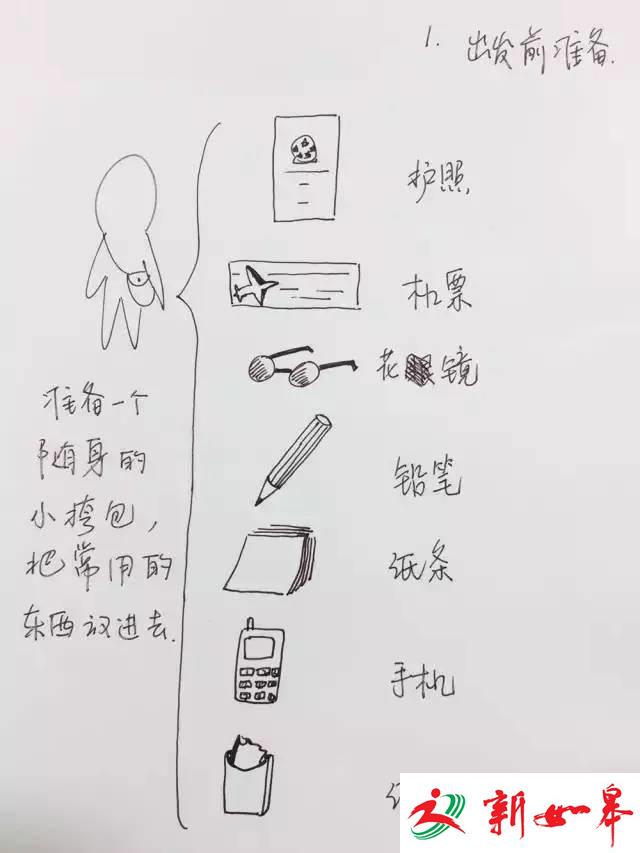 1. 出发前准备.
护照
机票
花镜
铅笔
纸条
手机
准备一个
随身的
小挎包，
把常用的
东西放进去.
新如皋